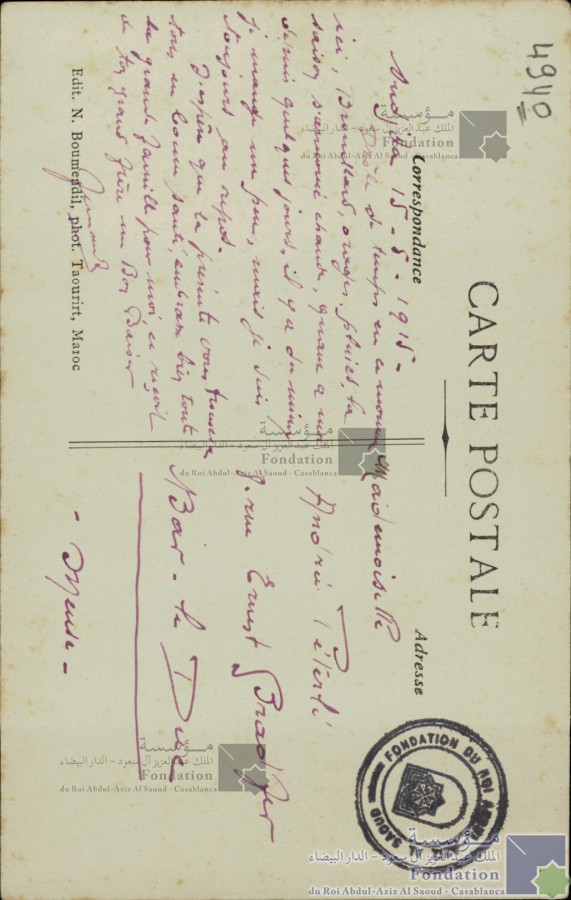 4940
CARTE POSTALE
Correspondance
Adresse
Oudjda 15-5-1915-
Drôle de temps en ce moment
ici, Brouillard, orages, pluies, la
saison s'annonce chaude, quant à moi
depuis quelques jours, il y a du mieux
je mange un peu, mais je suis
toujours au repos.
J'espère que la présente vous trouvera
tous en bonne santé, embrasse bien toute
la grande famille pour moi et reçoit
de ton grand frère un Bon Baiser
Mademoiselle
Andrée
8. rue Ernest Bradfer
Bar-le Duc
- Meuse -
Edit. N. Boumendil, phot. Taourirt, Maroc
FONDATION DU ROI ABDUL AZIZ AL SAOUD
مؤسسة
الملك عبدالعزيز آل سعود - الدار البيضاء
Fondation
du Roi Abdul-Aziz Al Saoud - Casablanca
مؤسسة
الملك عبدالعزيز آل سعود - الدار البيضاء
Fondation
du Roi Abdul-Aziz Al Saoud - Casablanca
مؤسسة
الملك عبدالعزيز آل سعود - الدار البيضاء
Fondation
du Roi Abdul-Aziz Al Saoud - Casablanca
مؤسسة
الملك عبدالعزيز آل سعود - الدار البيضاء
Fondation
du Roi Abdul-Aziz Al Saoud - Casablanca